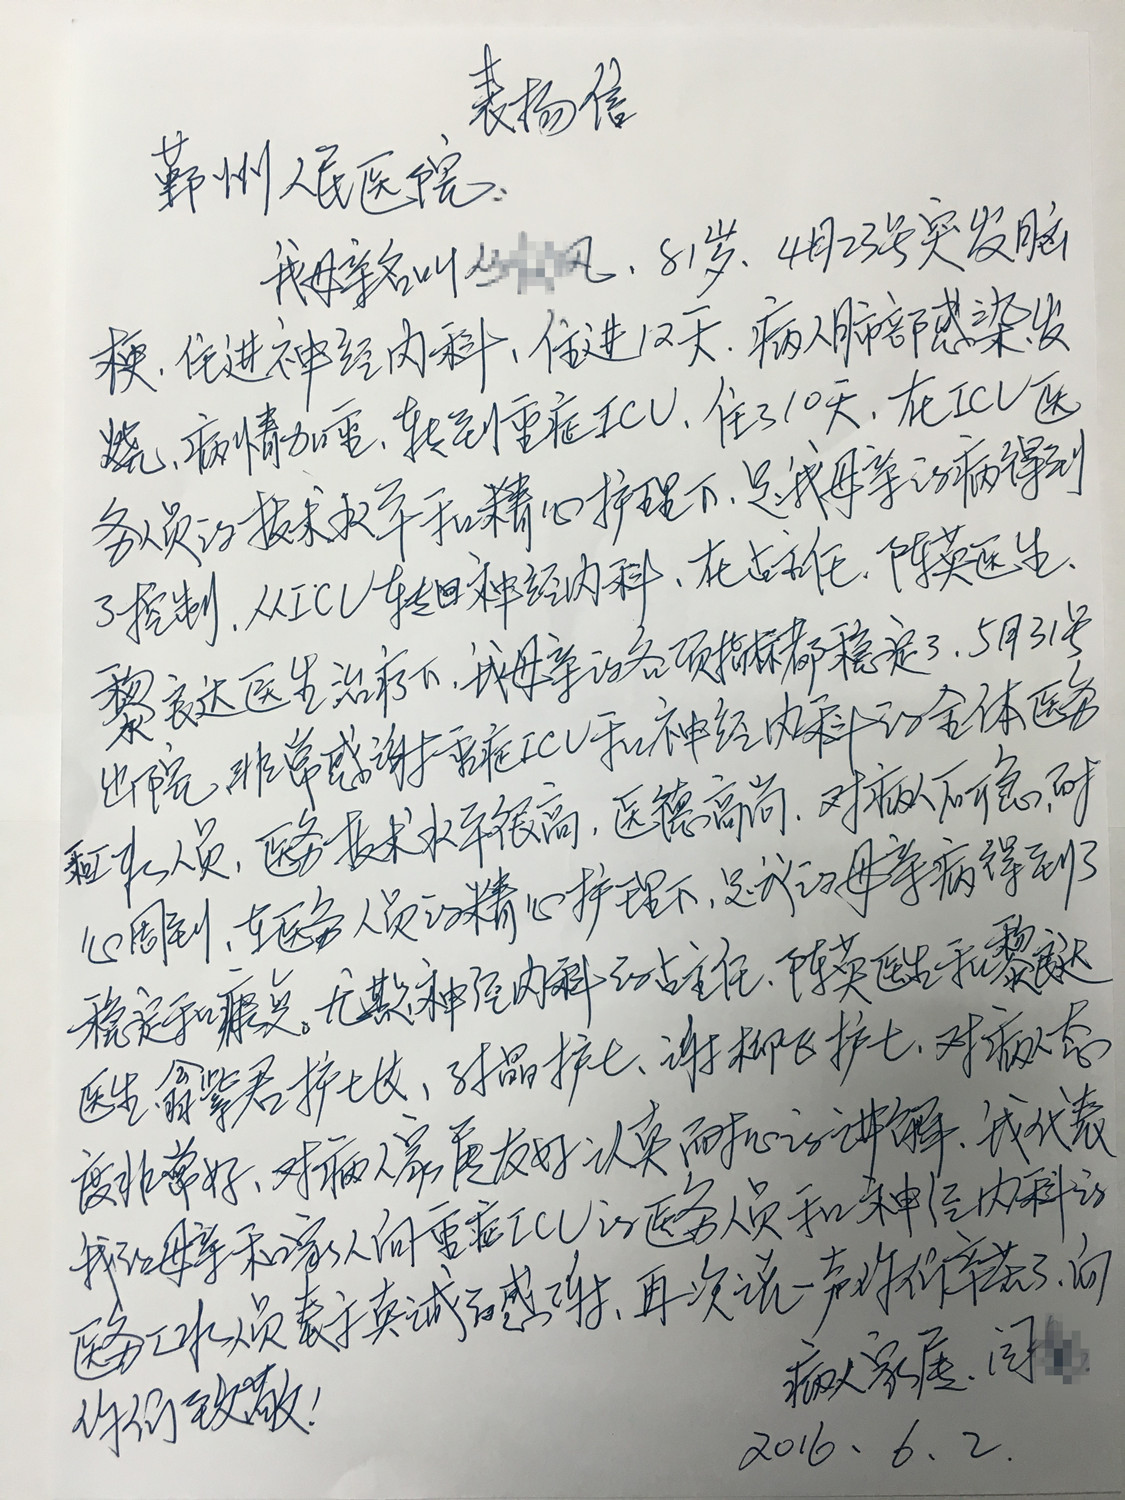 表扬信
鄞州人民医院:
我母亲名叫 风、81岁、4月23号突发脑
梗、住进神经内科、住进12天、病人肺部感染、发
烧、病情加重、转到重症ICU、住了10天、在ICU医
务人员的技术水平和精心护理下、是我母亲的病得到
了控制、从ICU转回神经内科、在占主任、陈英医生、
黎良达医生治疗下、我母亲的各项指标都稳定了、5月31号
出院、非常感谢重症ICU和神经内科的全体医务
和工作人员、医务技术水平很高、医德高尚、对病人所急、耐
心周到、在医务人员的精心护理下、是我的母亲病得到了
稳定和康复。尤其神经内科的占主任、陈英医生和黎良达
医生、翁紫君护士长、封晶护士、谢柳飞护士、对病人态
度非常好、对病人家属友好认真而热心的讲解、我代表
我的母亲和家人向重症ICU的医务人员和神经内科的
医务工作人员表示真诚的感谢、再次说一声你们辛苦了、向
你们致敬!
病人家属、闫
2016、6、2.